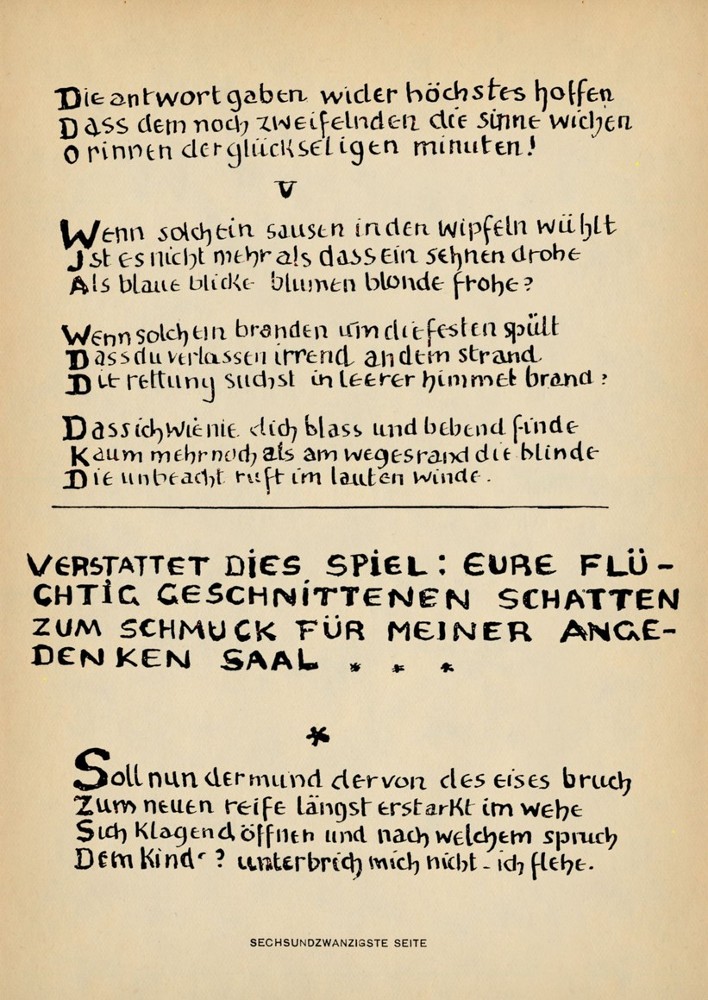 Die antwort gaben wider höchstes hoffen
Dass dem noch zweifelnden die sinne wichen
O rinnen der glückseligen minuten!
V
Wenn solch ein sausen in den wipfeln wühlt
Ist es nicht mehr als dass ein sehnen drohe
Als blaue blicke blumen blonde frohe?
Wenn solch ein branden um die festen spült
Dass du verlassen irrend an dem strand
Die rettung suchst in leerer himmel brand?
Dass ich wie nie dich blass und bebend finde
Kaum mehr noch als am wegesrand die blinde
Die unbeacht ruft im lauten winde.
VERSTATTET DIES SPIEL: EURE FLÜ-
CHTIG GESCHNITTENEN SCHATTEN
ZUM SCHMUCK FÜR MEINER ANGE-
DENKEN SAAL * * *
*
Soll nun der mund der von des eises bruch
Zum neuen reife längst erstarkt im wehe
Sich klagend öffnen und nach welchem spruch
Dem kinde? unterbrich mich nicht - ich flehe.
SECHSUNDZWANZIGSTE SEITE